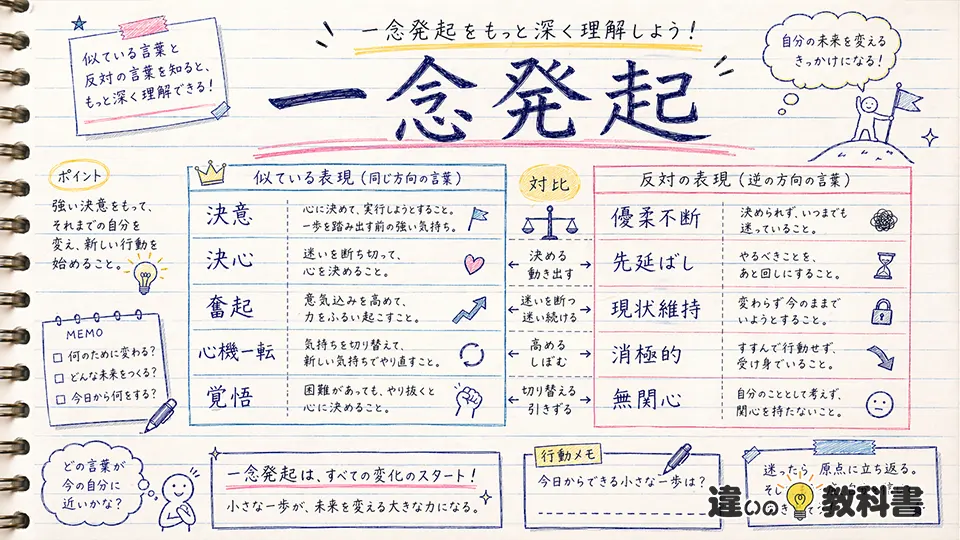 似ている言葉と
反対の言葉を知ると、
もっと深く理解できる！
一念発起をもっと深く理解しよう！
一念発起
自分の未来を変える
きっかけになる！
ポイント
強い決意をもって、
それまでの自分を
変え、新しい行動を
始めること。
MEMO
何のために変わる？
どんな未来をつくる？
今日から何をする？
似ている表現（同じ方向の言葉）
決意
心に決めて、実行しようとすること。
一歩を踏み出す前の強い気持ち。
決心
迷いを断ち切って、
心を決めること。
奮起
意気込みを高めて、
力をふるい起こすこと。
心機一転
気持ちを切り替えて、
新しい気持ちでやり直すこと。
覚悟
困難があっても、やり抜くと
心に決めること。
対比
決める
動き出す
迷いを断つ
迷い続ける
高める
しぼむ
切り替える
引きずる
反対の表現（逆の方向の言葉）
優柔不断
決められず、いつまでも
迷っていること。
先延ばし
やるべきことを、
あと回しにすること。
現状維持
変わらず今のままで
いようとすること。
消極的
すすんで行動せず、
受け身でいること。
無関心
自分のこととして考えず、
関心を持たないこと。
どの言葉が
今の自分に
近いかな？
一念発起は、すべての変化のスタート！
小さな一歩が、未来を変える大きな力になる。
行動メモ
今日からできる小さな一歩は？
迷ったら、原点に立ち返る。
そし
違いの教科書